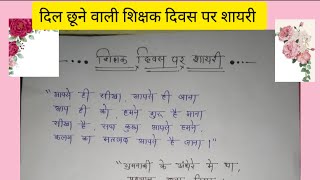 दिल छूने वाली शिक्षक दिवस पर शायरी
शिक्षक दिवस पर शायरी
"आपसे ही सीखा, आपसे ही जाना
आप ही को, हमने गुरु है माना
सीखा है, सब कुछ आपसे हमने,
कलम का मतलब आपसे है जाना।"
"अज्ञानी के अंधेरे में था,